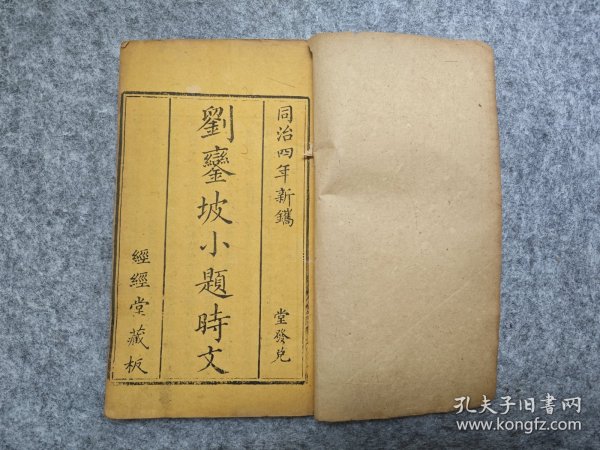 同治四年新鐫
堂發兌
劉鑾坡小題時文
經經堂藏板
孔夫子旧书网
www.kongfz.com